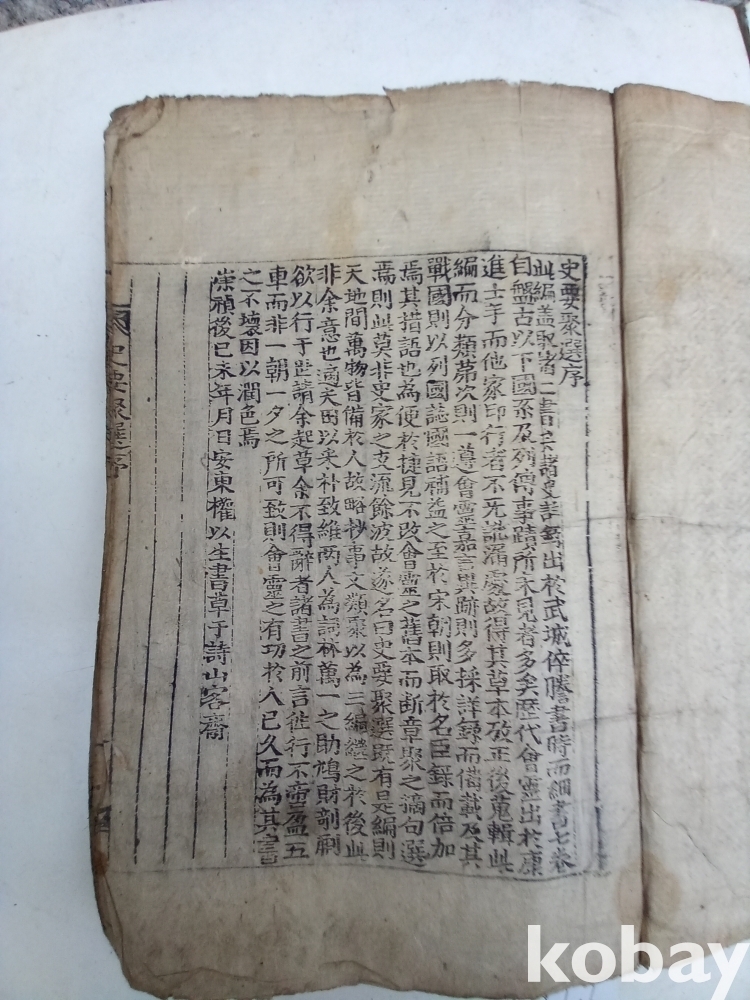 史要聚選序
此編盖取諸二書采諸史詳錄出於武城倅謄書時而細書七卷
自盤古以下國系及列傳事蹟所未見者多矣歷代會靈出於康
進士手而他家印行者不免訛漏處故得其草本攷正後蒐輯此
編而分類第次則一遵會靈嘉言異跡則多採詳錄而備載及其
戰國則以列國誌國語補益之至於宋朝則取於名臣錄而倍加
焉其措語也為便於捷見不改會靈之舊本而斷章聚之摘句選
焉則此莫非史家之支流餘波故遂名曰史要聚選旣有是編則
天地間萬物皆備於人故略抄事文類聚以為三編繼之於後此
非余意也適天田以采朴致維兩人為詞林萬一之助鳩財剞劂
欲以行于世請余起草余不得辭者諸書之前言徃行不啻盈五
車而非一朝一夕之所可致則會靈之有功於人已久而為其書
之不壞因以潤色焉
崇禎後己未年月日安東權以生書草于詩山客齋
史要聚選序
kobay